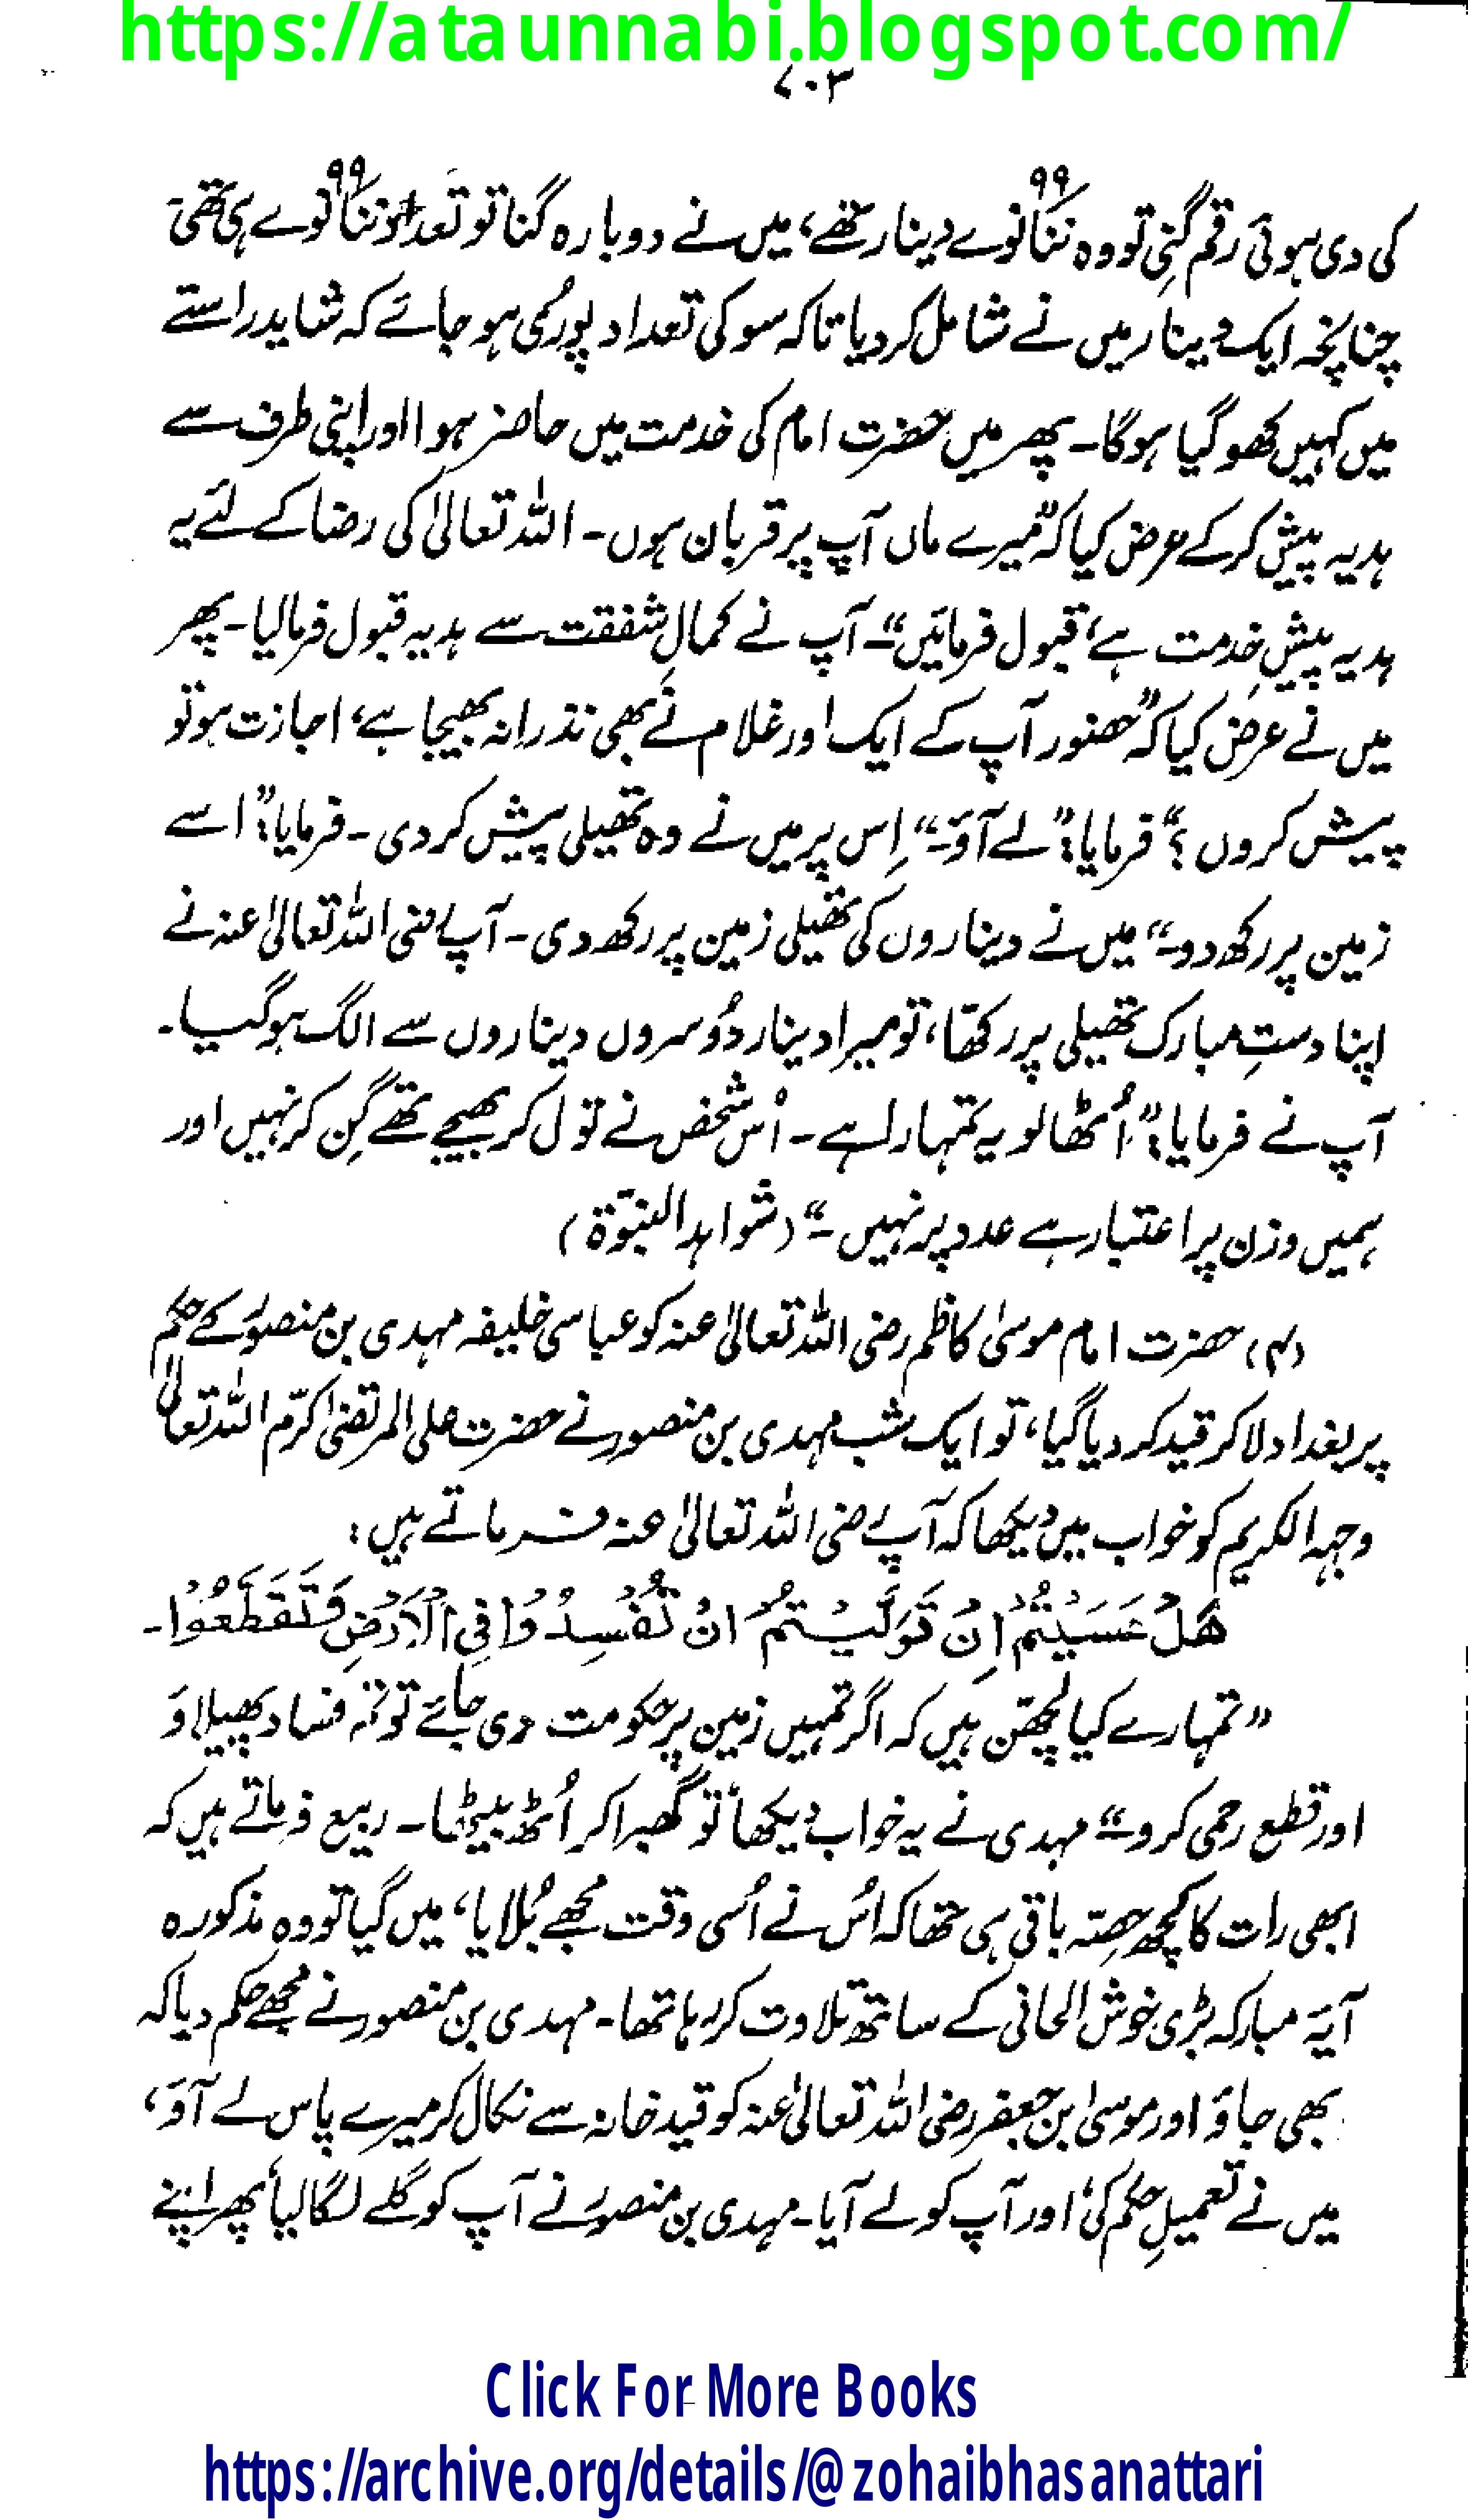 https://ataunnabi.blogspot.com/
۷۰۳
کی دی ہوئی رقم گنی تو وہ ننانوے ۹۹ دینار تھے، میں نے دوبارہ گنا تو تعداد ننانوے ۹۹ ہی تھی۔
چنانچہ ایک دینار میں نے شامل کر دیا تاکہ سو کی تعداد پوری ہو جائے کہ شاید راستے
میں کہیں کھو گیا ہوگا۔ پھر میں حضرت امام کی خدمت میں حاضر ہوا اور اپنی طرف سے
ہدیہ پیش کر کے عرض کیا کہ ”میرے ماں آپ پر قربان ہوں۔ اللہ تعالیٰ کی رضا کے لئے یہ
ہدیہ پیشِ خدمت ہے، قبول فرمائیں“۔ آپ نے کمالِ شفقت سے ہدیہ قبول فرما لیا۔ پھر
میں نے عرض کیا کہ ”حضور آپ کے ایک اور غلام نے بھی نذرانہ بھیجا ہے، اجازت ہو تو
پیش کروں؟“ فرمایا: ”لے آؤ۔“ اِس پر میں نے وہ تھیلی پیش کر دی۔ فرمایا: ”اسے
زمین پر رکھ دو۔“ میں نے دیناروں کی تھیلی زمین پر رکھ دی۔ آپ رضی اللہ تعالیٰ عنہ نے
اپنا دستِ مبارک تھیلی پر رکھا، تو میرا دینار دُوسروں دیناروں سے الگ ہو گیا۔
آپ نے فرمایا: ”اُٹھا لو یہ تمہارا ہے۔ اُس شخص نے تول کر بھیجے تھے گِن کر نہیں اور
ہمیں وزن پر اعتبار ہے عدد پر نہیں۔“ (شواہد النبوّۃ)
(۴) حضرت امام موسیٰ کاظم رضی اللہ تعالیٰ عنہ کو عباسی خلیفہ مہدی بن منصور کے حکم
پر بغداد لا کر قید کر دیا گیا، تو ایک شب مہدی بن منصور نے حضرت علی المرتضیٰ کرّم اللہ تعالیٰ
وجہہ الکریم کو خواب میں دیکھا کہ آپ رضی اللہ تعالیٰ عنہ فرماتے ہیں:
هَلْ عَسَيْتُمْ اِنْ تَوَلَّيْتُمْ اَنْ تُفْسِدُوْا فِی الْاَرْضِ وَتَقَطَّعُوْا۔
”تمہارے کیا لچھن ہیں کہ اگر تمہیں زمین پر حکومت دی جائے تو تم فساد پھیلاؤ
اور قطع رحمی کرو۔“ مہدی نے یہ خواب دیکھا تو گھبرا کر اُٹھ بیٹھا۔ ربیع فرماتے ہیں کہ
ابھی رات کا کچھ حصّہ باقی ہی تھا کہ اُس نے اُسی وقت مجھے بُلایا، میں گیا تو وہ مذکورہ
آیۂ مبارکہ بڑی خوش الحانی کے ساتھ تلاوت کر رہا تھا۔ مہدی بن منصور نے مجھے حکم دیا کہ
بھی جاؤ اور موسیٰ بن جعفر رضی اللہ تعالیٰ عنہ کو قید خانہ سے نکال کر میرے پاس لے آؤ،
میں نے تعمیلِ حکم کی، اور آپ کو لے آیا۔ مہدی بن منصور نے آپ کو گلے لگا لیا، پھر اپنے
Click For More Books
https://archive.org/details/@zohaibhasanattari